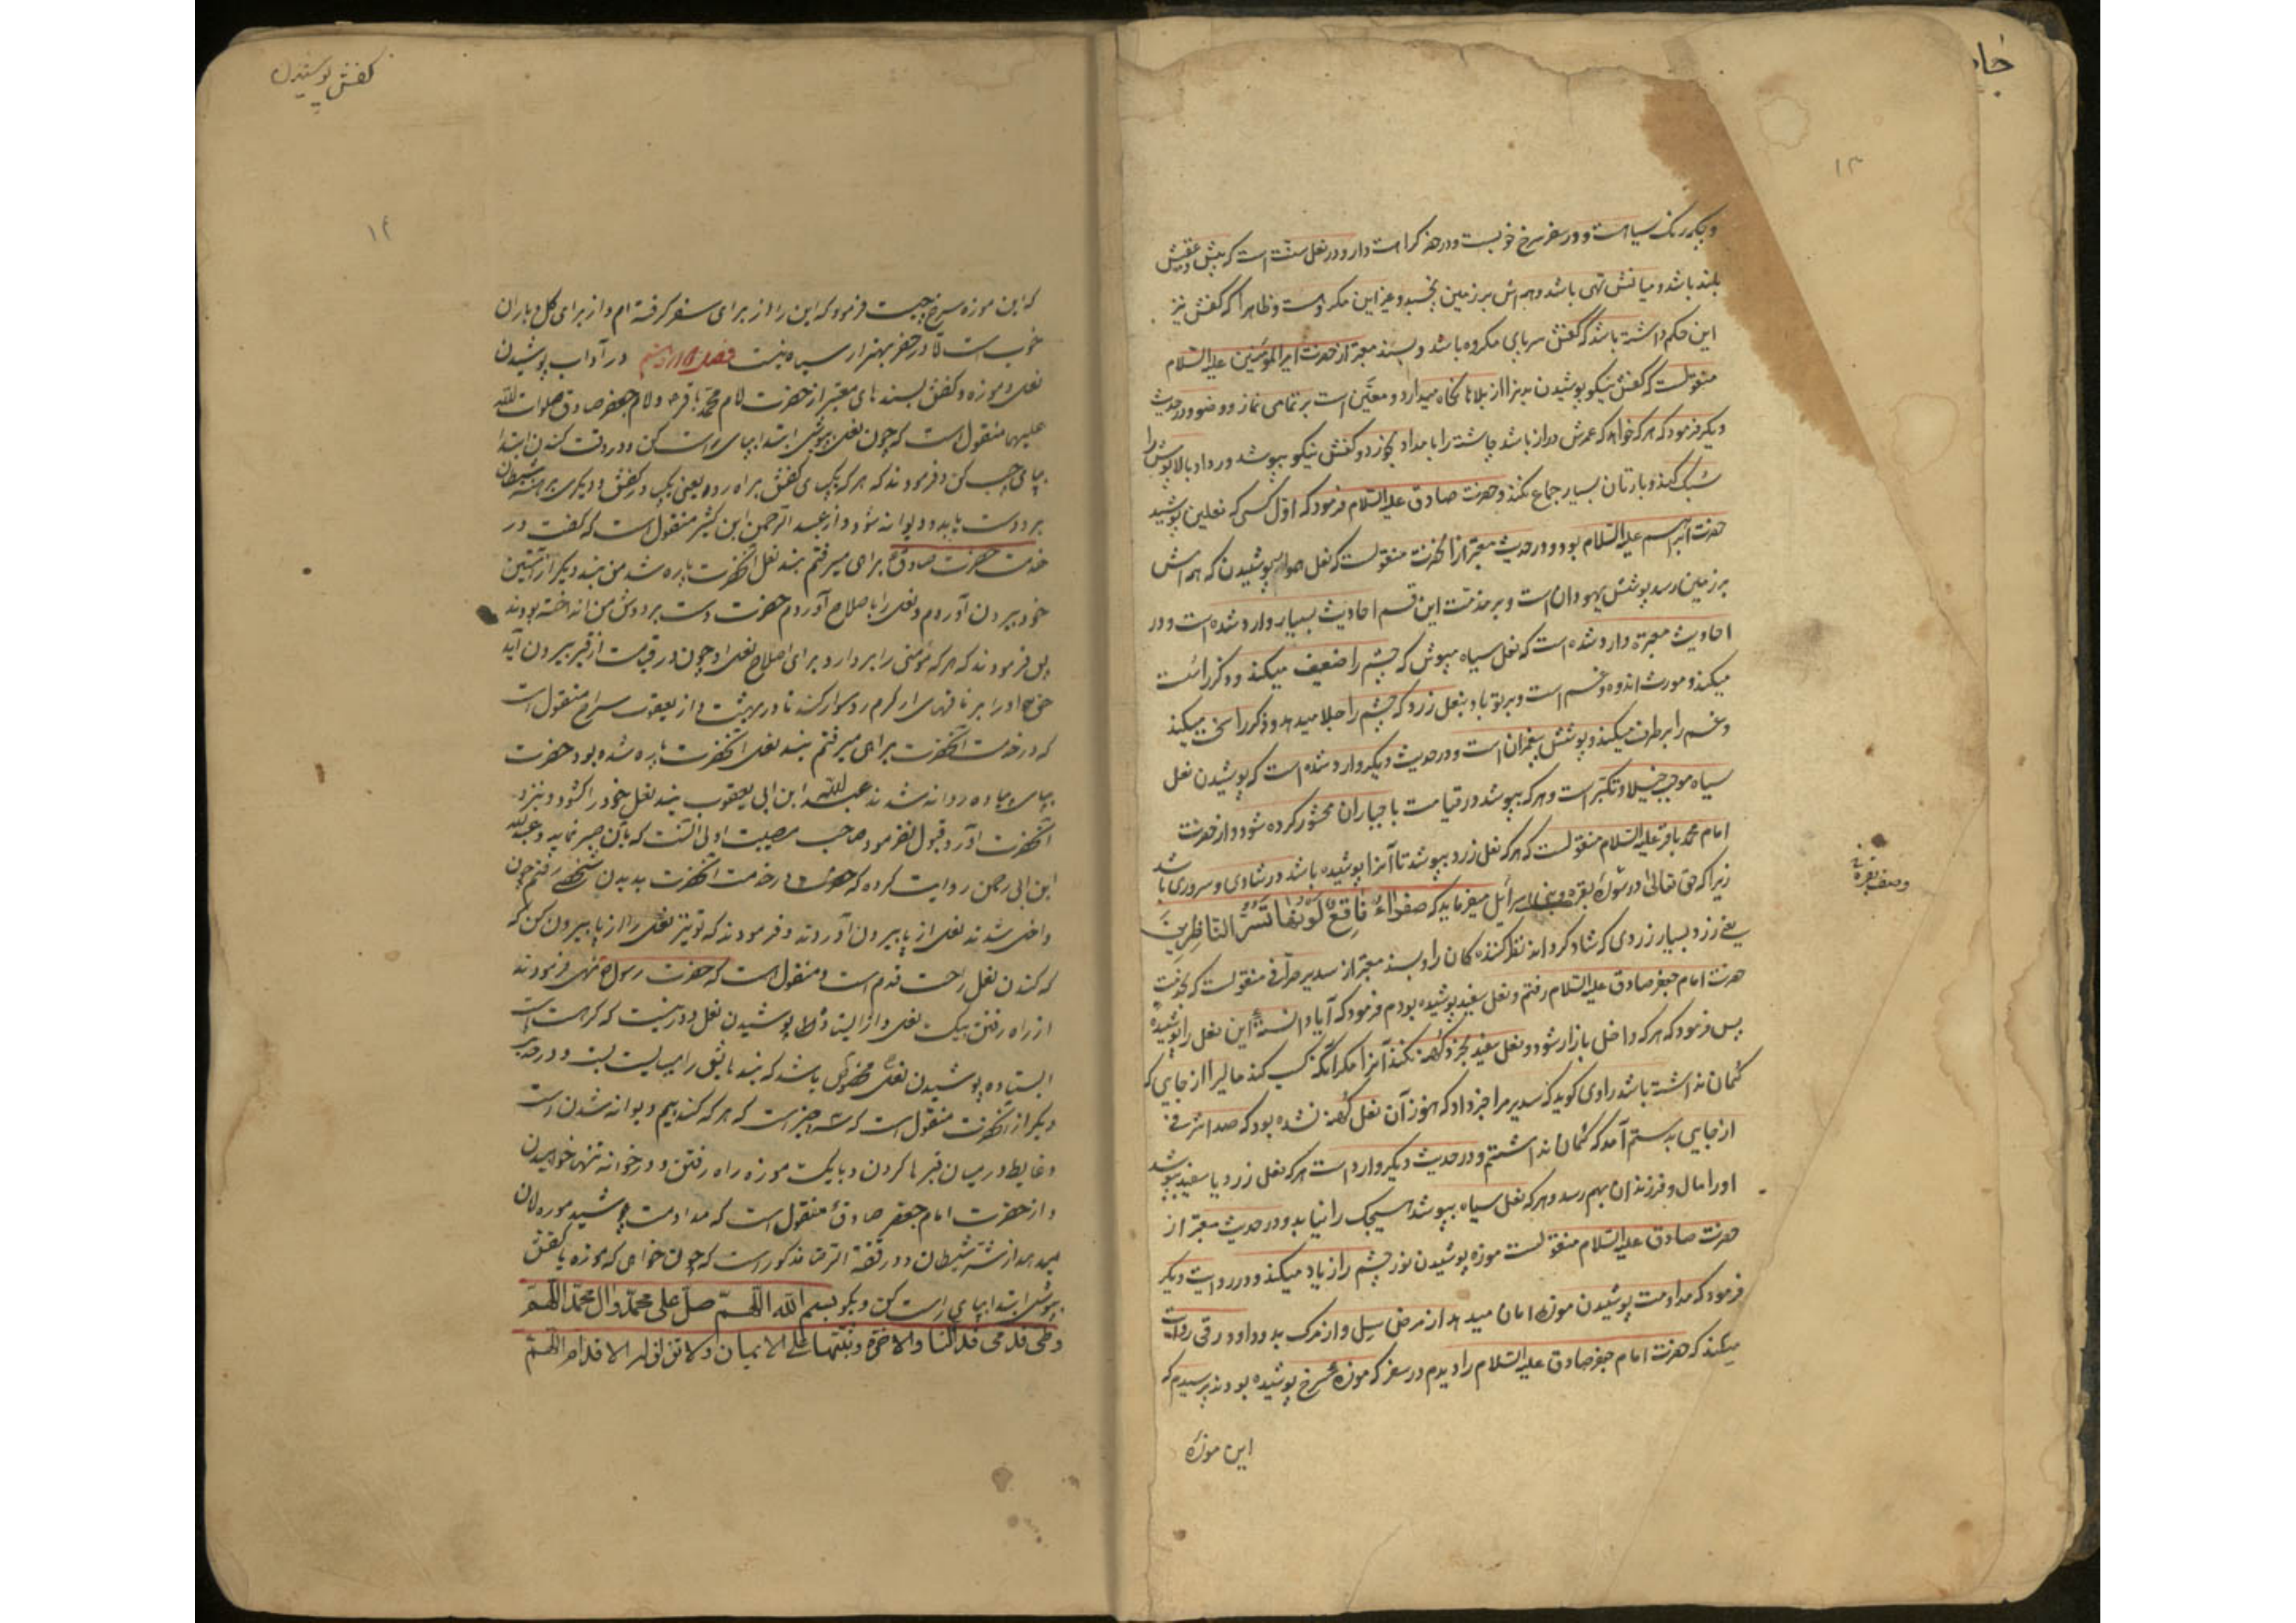 جا
۱۳
و دیگر رنک سیاهست و در سفر سرخ خوبست و در حضر کراهت دارد و در نعل سنت است که پیش و عقبش
بلند باشد و میانش تهی باشد و همه‌اش بر زمین نچسبد و غیر این مکروهست و ظاهرا که کفش نیز
این حکم داشته باشد که کفش سرپای مکروه باشد و بسند معتبر از حضرت امیر المؤمنین علیه السلام
منقولست که کفش نیکو پوشیدن بدنرا از بلاها نکاه میدارد و معین است بر تمامی نماز و وضو و در حدیث
دیگر فرمود که هر که خواهد که عمرش دراز باشد چاشته را بامداد بخورد و کفش نیکو بپوشد و رداء بالاپوش را
سبک کند و با زنان بسیار جماع نکند و حضرت صادق علیه السلام فرمود که اول کسی که نعلین پوشید
حضرت ابراهیم علیه السلام بود و در حدیث معتبر از آنحضرت منقولست که نعل هموار پوشیدن که همه‌اش
بر زمین رسد پوشش یهودانست و بر مذمت این قسم احادیث بسیار وارد شده است و در
احادیث معتبره وارد شده است که نعل سیاه مپوش که چشم را ضعیف میکند و ذکر را سست
میکند و مورث اندوه و غم است و بر تو باد بنعل زرد که چشم را جلا میدهد و ذکر را سخت میکند
و غم را برطرف میکند و پوشش پیغمبران است و در حدیث دیکر وارد شده است که پوشیدن نعل
سیاه موجب خیلا و تکبر است و هر که بپوشد در قیامت با جباران محشور کرده شود و از حضرت
امام محمد باقر علیه السلام منقولست که هر که نعل زرد بپوشد تا آنرا پوشیده باشد در شادی و سروری باشد
زیرا که حق تعالی در سورۀ بقره بنی اسرائیل میفرماید که صفراء فاقع لونها تسر الناظرین
وصف بقره
یعنی زرد بسیار زردی که شاد کرداند نظر کننده کان را و بسند معتبر از سدیر صرافی منقولست که بخدمت
حضرت امام جعفر صادق علیه السلام رفتم و نعل سفید پوشیده بودم فرمود که آیا دانسته این نعل را پوشیدۀ
پس فرمود که هر که داخل بازار شود و نعل سفید بخرد کهنه نکند آنرا مکر آنکه کسب کند مالیرا از جایی که
کمان نداشته باشد راوی کوید که سدیر مرا خبر داد که هنوز آن نعل کهنه نشده بود که صد اشرفی
از جایی بدستم آمد که کمان نداشتم و در حدیث دیکر وارد است هر که نعل زرد یا سفید بپوشد
او را مال و فرزندان بهم رسد و هر که نعل سیاه بپوشد هیچیک را نیابد و در حدیث معتبر از
حضرت صادق علیه السلام منقولست موزه پوشیدن نور چشم را زیاد میکند و در روایت دیکر
فرمود که مداومت پوشیدن موزه امان میدهد از مرض سل و از مرک بد و داود رقی روایت
میکند که حضرت امام جعفر صادق علیه السلام را دیدم در سفر که موزۀ سرخ پوشیده بودند پرسیدم که
این موزۀ
کفش پوشیدن
۱۴
که این موزه سرخ چیست فرمود که این را از برای سفر کرفته‌ام و از برای کل و باران
خوب است و در حضر بهتر از سیاه نیست فصل در آداب پوشیدن
نعل و موزه و کفش بسندهای معتبر از حضرت امام محمد باقر و امام جعفر صادق صلوات الله
علیهما منقول است که چون نعل بپوشی ابتدا بپای راست کن و در وقت کندن ابتدا
بپای چپ کن و فرمودند که هر که یکپای کفش براه رود یعنی یکپا در کفش و دیکری برهنه شیطان
بر او دست یابد و دیوانه شود و از عبد الرحمن ابن کثیر منقول است که کفت در
خدمت حضرت صادق براهی میرفتم بند نعل آنحضرت پاره شد من بند دیکر از آستین
خود بیرون آوردم و نعل را باصلاح آوردم حضرت دست بر دوش من انداخته بودند
پس فرمودند که هر که مؤمنی را بردارد برای اصلاح نعل او چون در قیامت از قبر بیرون آید
حق تعالی او را بر ناقهٔ سوار کند تا در بهشت و از یعقوب سراج منقول است
که در خدمت آنحضرت براهی میرفتم بند نعل آنحضرت پاره شده بود حضرت
بپای پیاده روانه شدند عبد الله ابن ابی یعقوب بند نعل خود را کشود و نزد
آنحضرت آورد قبول نفرمود صاحب مصیبت اولی آنست که بآن صبر نماید و عبد الله
ابن ابی رحمن روایت کرده که در خدمت آنحضرت بدیدن شخصی رفتم چون
داخل شدند نعل از پا بیرون آوردند و فرمودند که تو نیز نعل را از پا بیرون کن که
که کندن نعل راحت قدم است و منقول است که حضرت رسول نهی فرمودند
از راه رفتن بیک نعل و از ایستاده پوشیدن نعل و دور نیست که کراهت
ایستاده پوشیدن نعل مخصوص باشد که بند هایش را میبایست بست و در حدیث
دیکر از آنحضرت منقول است که سه چیز است که هر که کند بیم دیوانه شدن است
و غایط در میان قبرها کردن و با یک موزه راه رفتن و در خانه تنها خوابیدن
و از حضرت امام جعفر صادق منقول است که مداومت پوشیدن موزه امان
میدهد از شر شیطان و در فقه الرضا مذکور است که چون خواهی که موزه یا کفش
بپوشی ابتدا بپای راست کن و بکو بسم الله اللهم صل علی محمد و ال محمد اللهم
وطئ قدمی فی الدنیا والاخرة وثبتهما علی الایمان ولا تزلزل الاقدام اللهم